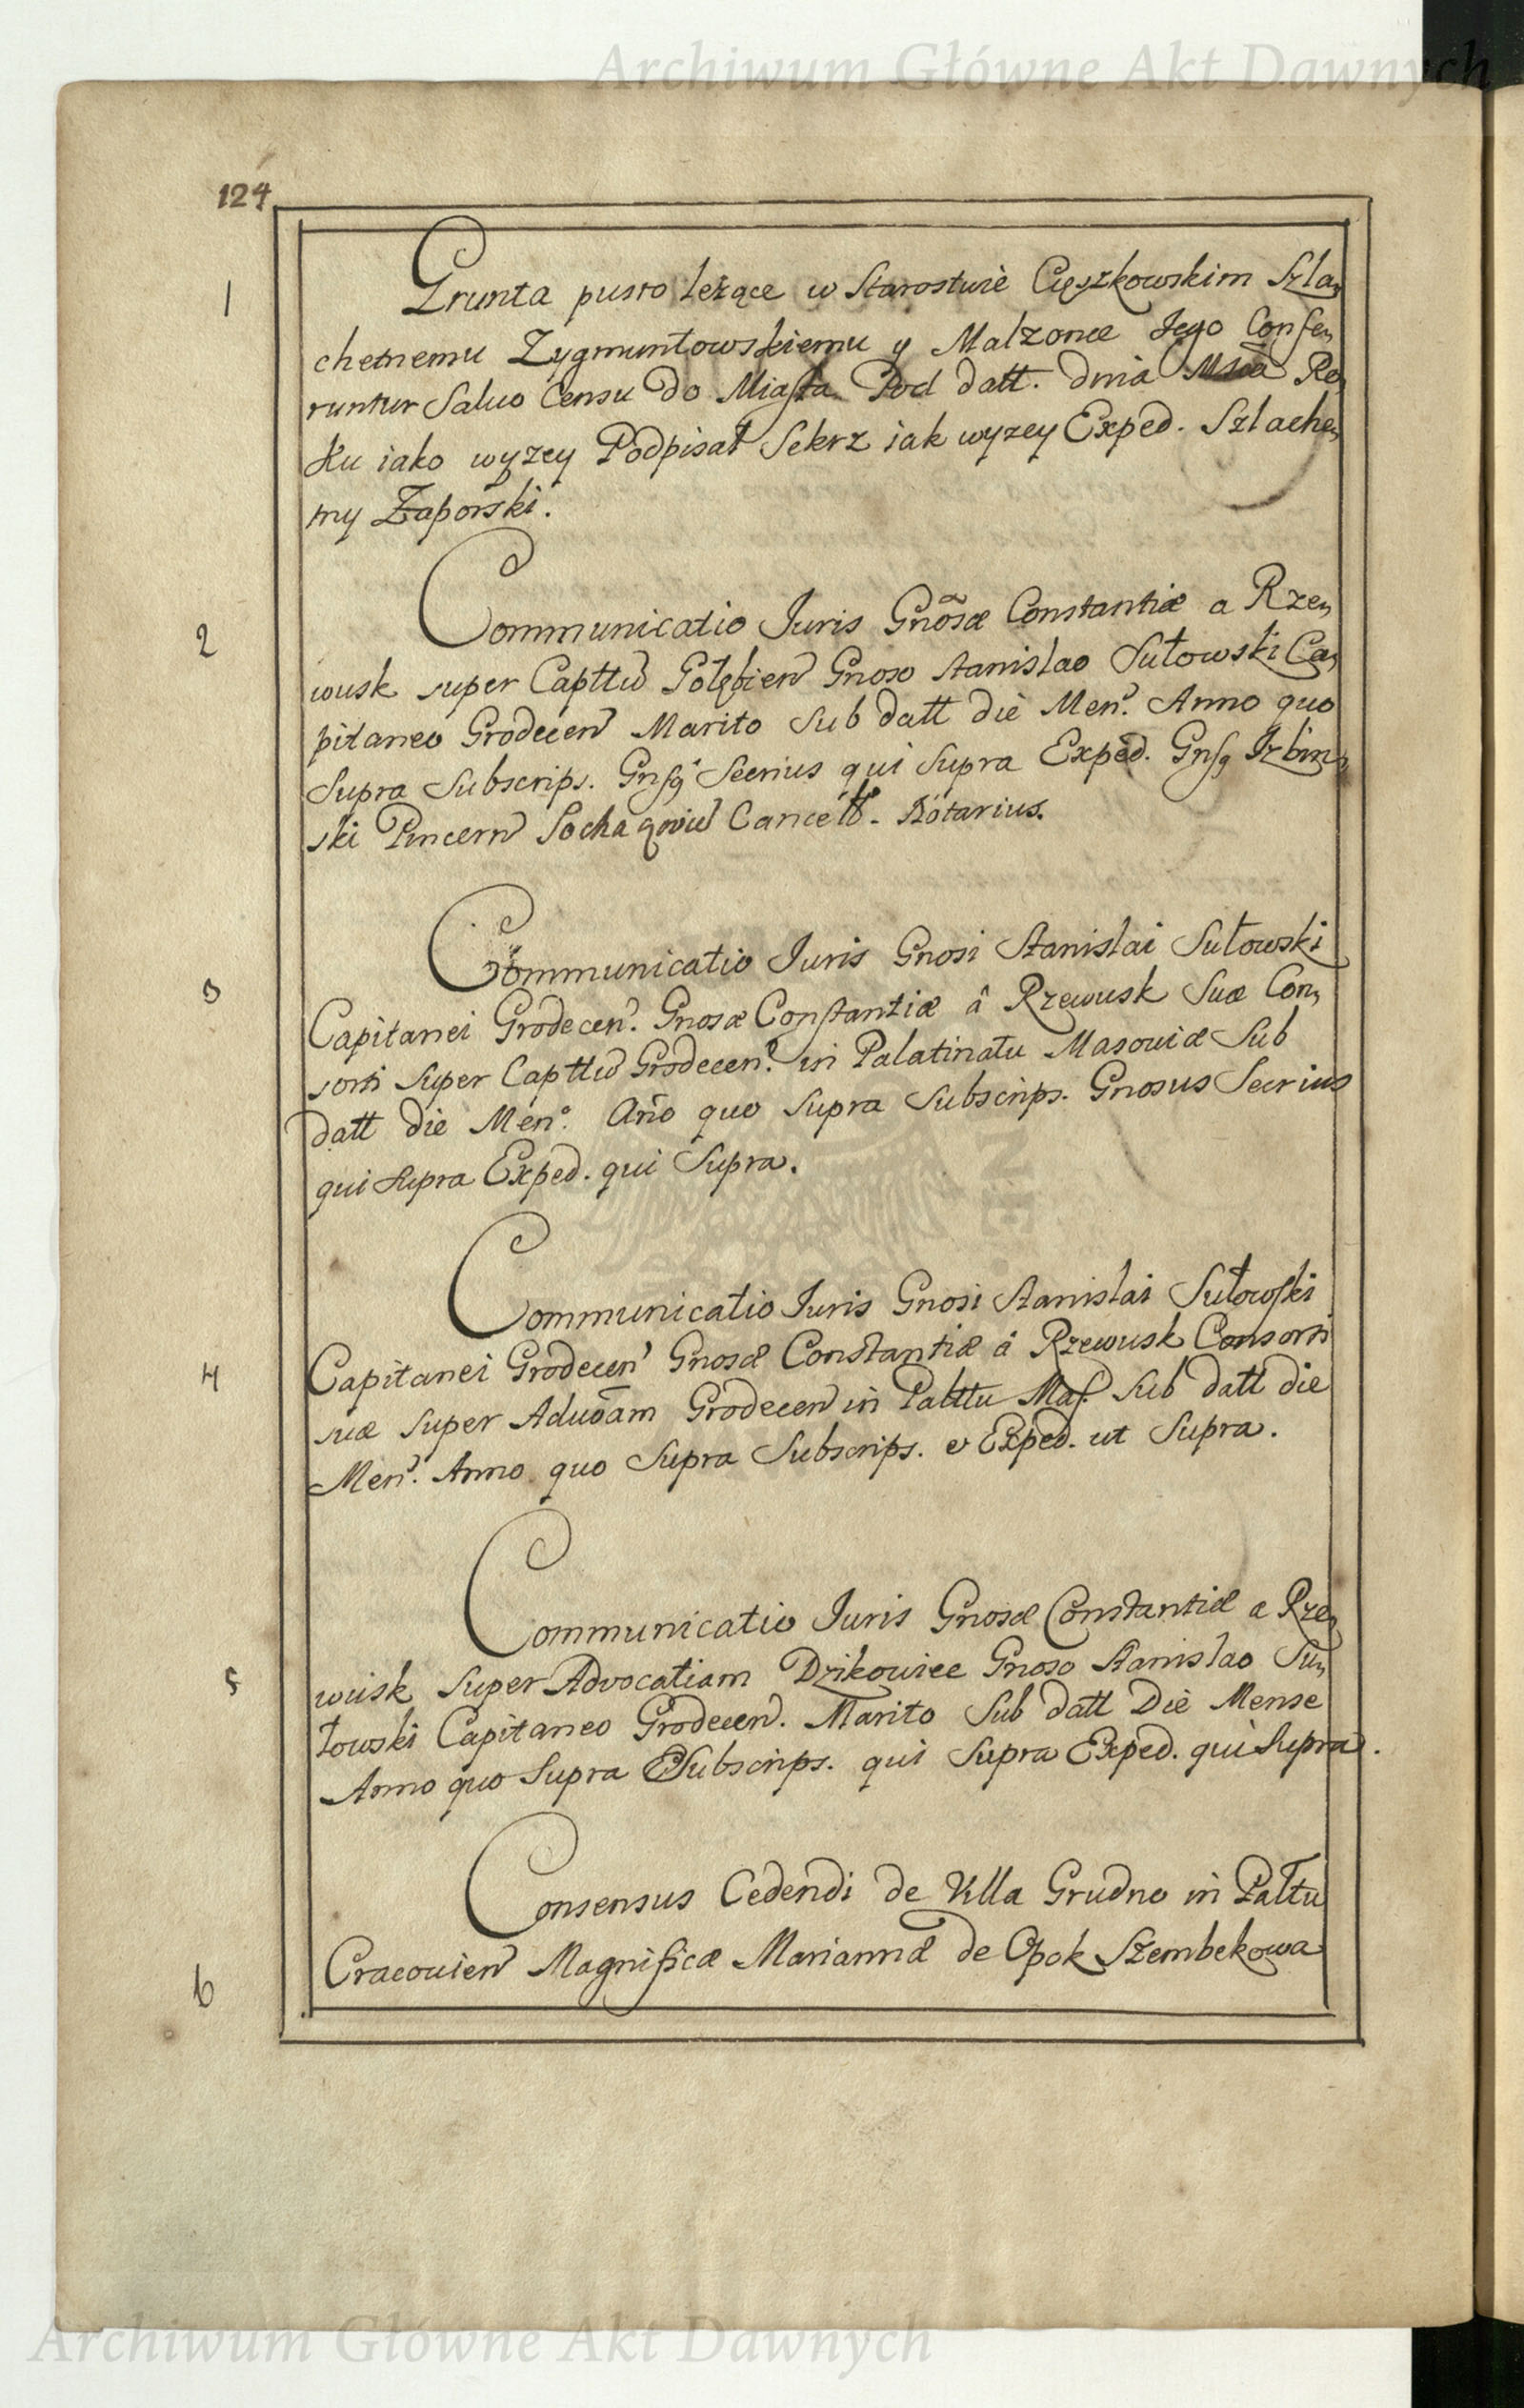 Archiwum Główne Akt Dawnych
124
1
Grunta pusto leżące w Starostwie Cięszkowskim Szla,
chetnemu Zygmuntowskiemu y Malzonce Jego Confe,
runtur Saluo Censu do Miasta Pod datt. dnia Msca Ro,
ku iako wyzey Podpisał Sekrz iak wyzey Exped. Szlache,
tny Zaporski.
2
Communicatio Juris Gnosæ Constantiæ a Rze,
wusk super Capttu Gołębien Gnoso Stanislao Sułowski Ca,
pitaneo Grodecen Marito Sub datt die Men. Anno quo
Supra Subscrips. Gnsq Secrius qui Supra Exped. Gnsq Izbin,
ski Pincern Sochaczovien Cancell. Notarius.
3
Communicatio Juris Gnosi Stanislai Sułowski
Capitanei Grodecen. Gnosæ Constantiæ â Rzewusk Suæ Con,
sorti Super Capttu Grodecen. in Palatinatu Masoviæ Sub
datt die Men. Año quo Supra Subscrips. Gnosus Secrius
qui Supra Exped. qui Supra.
4
Communicatio Juris Gnosi Stanislai Sułowski
Capitanei Grodecen Gnosæ Constantiæ â Rzewusk Consorti
suæ super Aduoãm Grodecen in Palttu Mas. Sub datt die
Men. Anno quo Supra Subscrips. e Exped. ut Supra.
5
Communicatio Juris Gnosæ Constantiæ a Rze,
wusk Super Advocatiam Dzikowiec Gnoso Stanislao Su,
łowski Capitaneo Grodecen. Marito Sub datt Die Mense
Anno quo Supra Subscrips. qui Supra Exped. qui Supra.
6
Consensus Cedendi de Villa Grudno in Palttu
Cracovien Magnificæ Mariannæ de Opok Szembekowa
Archiwum Główne Akt Dawnych